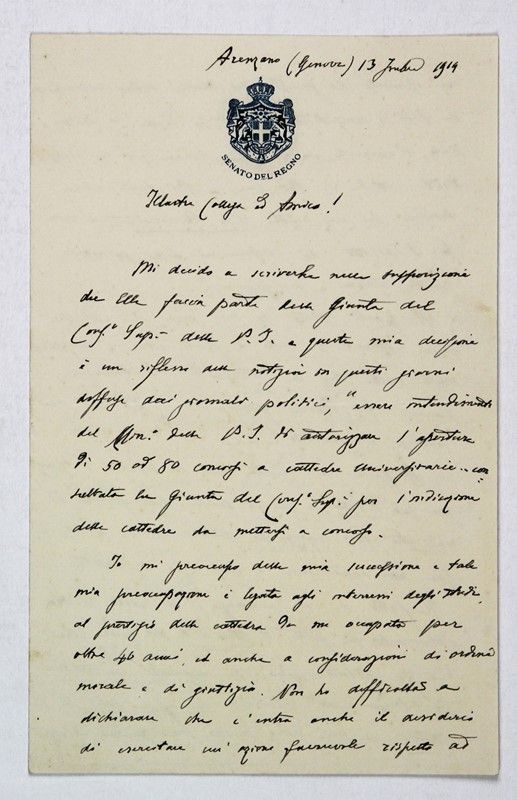 Arenzano (Genova) 13 1919
SENATO DEL REGNO
Illustre Collega ed Amico!
Mi decido a scriverle nella supposizione
che Ella faccia parte della Giunta del
Cons.º Sup.e della P.I. e questa mia decisione
è un riflesso delle notizie in questi giorni
diffuse dai giornali politici, "essere intendimento
del Min.º della P.I. di autorizzare l'apertura
di 50 od 80 concorsi a cattedre universitarie .. con
sultata la Giunta del Cons.º Sup.e per l'indicazione
delle cattedre da mettersi a concorso.
Io mi preoccupo della mia successione e tale
mia preoccupazione è legata agli interessi degli studi,
al prestigio della cattedra da me occupata per
oltre 40 anni, ed anche a considerazioni di ordine
morale e di giustizia. Non ho difficoltà a
dichiarare che c'entra anche il desiderio
di esercitare un'azione favorevole rispetto ad